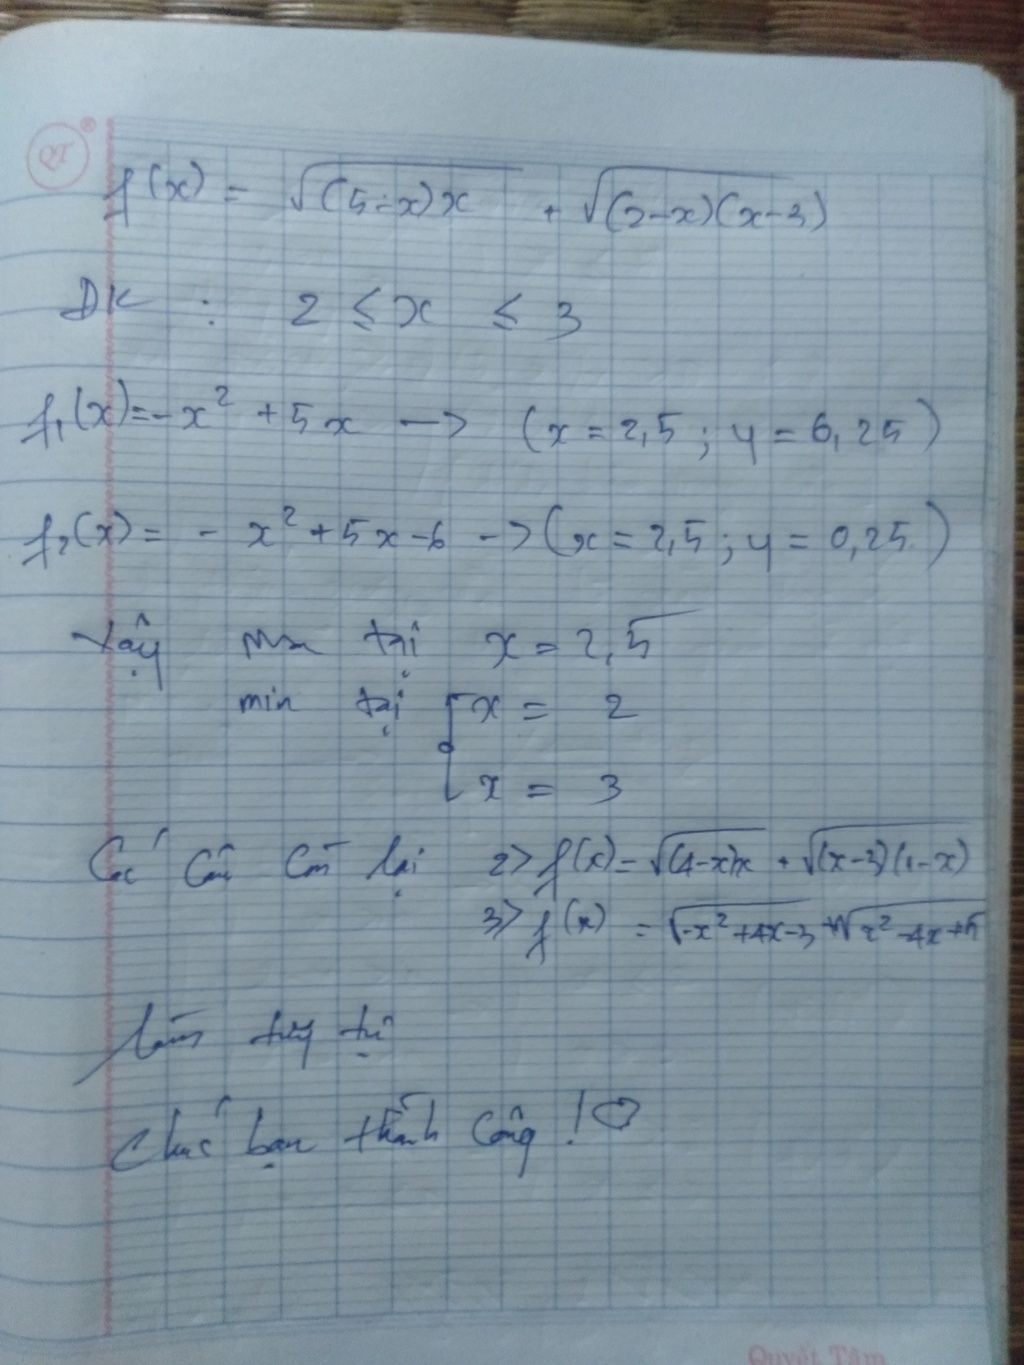 QT ®
f(x) = √(5-x)x + √(2-x)(x-3)
ĐK : 2 ≤ x ≤ 3
f₁(x)=-x² + 5x → (x = 2,5 ; y = 6,25)
f₂(x) = - x² + 5x - 6 → (x = 2,5 ; y = 0,25)
Vậy max tại x = 2,5
min tại [ x = 2
x = 3
Các câu còn lại 2> f(x) = √(4-x)x + √(x-3)(1-x)
3> f(x) = √-x²+4x-3 + √x²-4x+5
làm tương tự
Chúc bạn thành công ! ♡
Quyết Tâm